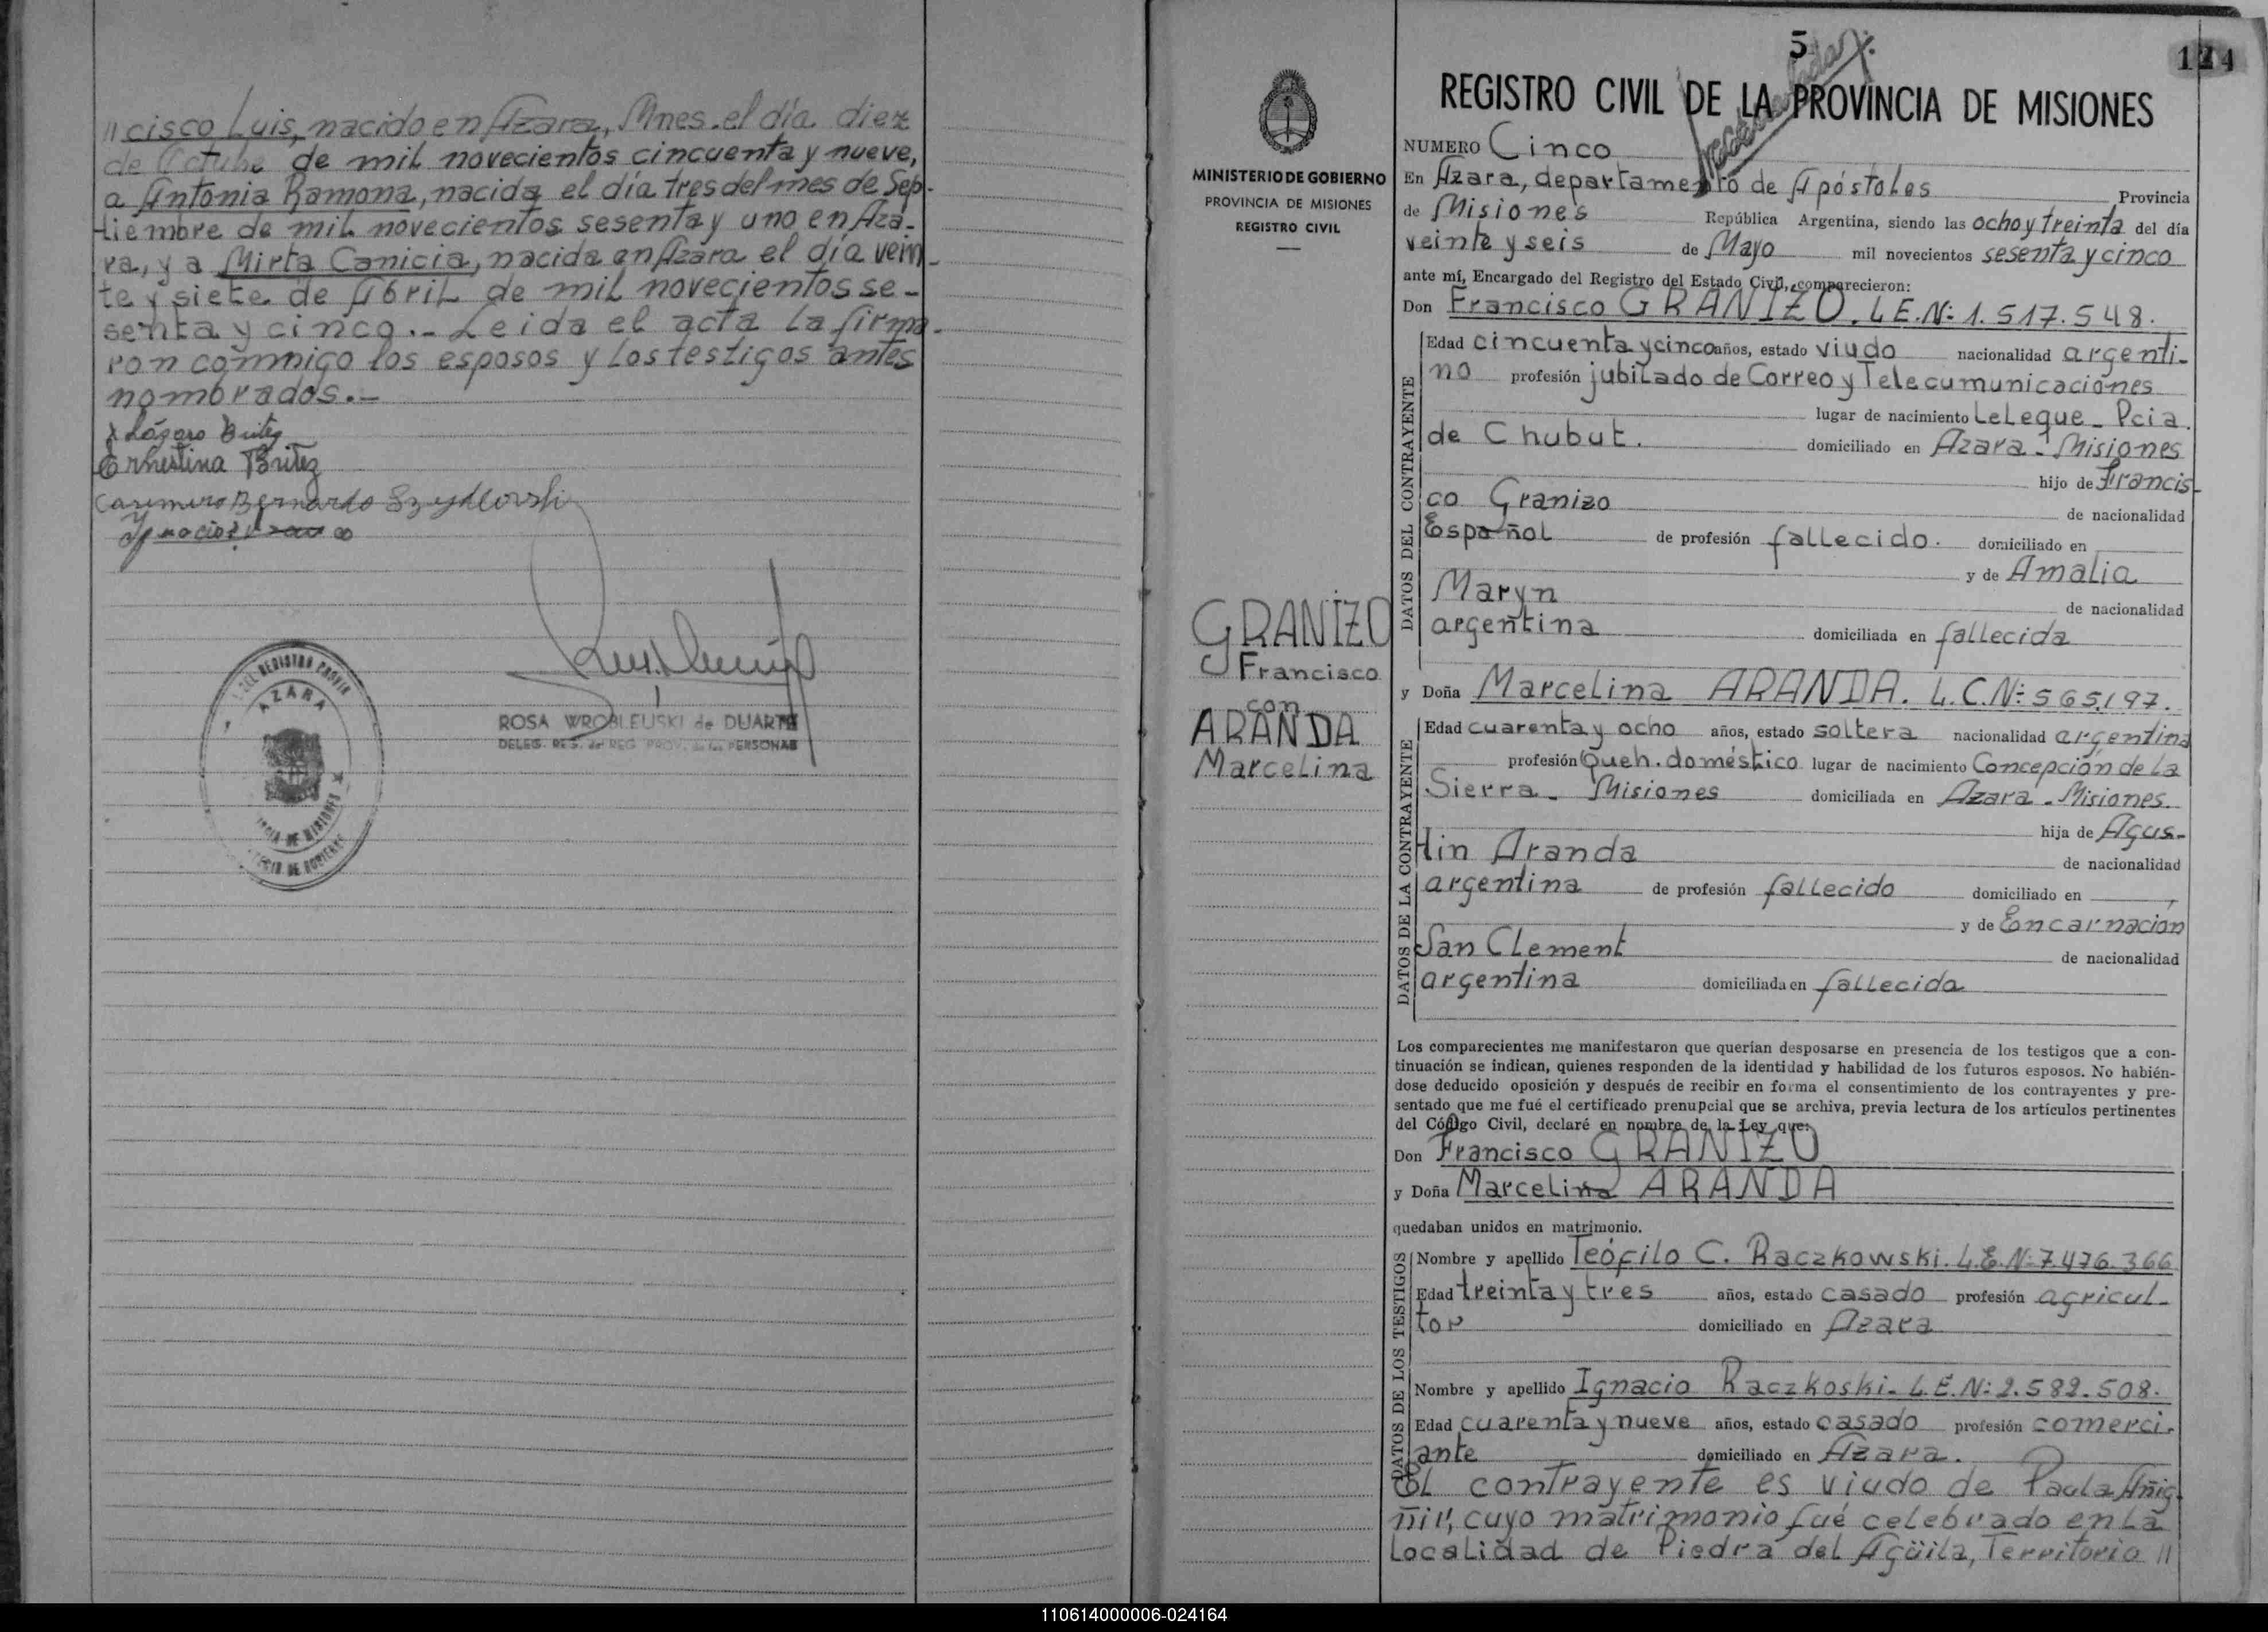 // cisco Luis, nacido en Azara, Mnes. el día diez
de Octubre de mil novecientos cincuenta y nueve,
a Antonia Ramona, nacida el día tres del mes de Sep-
tiembre de mil novecientos sesenta y uno en Aza-
ra, y a Mirta Canicia, nacida en Azara el día vein-
te y siete de Abril de mil novecientos se-
senta y cinco.- Leida el acta la firma-
ron conmigo los esposos y los testigos antes
nombrados.-
Lázaro Britez
Ernestina Britez
Casimiro Bernardo Szydlovski
Ignacio
AZARA
ROSA WROBLEUSKI de DUARTE
DELEG. REG. del REG. PROV. de las PERSONAS
MINISTERIO DE GOBIERNO
PROVINCIA DE MISIONES
REGISTRO CIVIL
GRANIZO
Francisco
con
ARANDA
Marcelina
5
124
REGISTRO CIVIL DE LA PROVINCIA DE MISIONES
NUMERO Cinco
En Azara, departamento de Apóstoles Provincia
de Misiones República Argentina, siendo las ocho y treinta del día
veinte y seis de Mayo mil novecientos sesenta y cinco
ante mí, Encargado del Registro del Estado Civil, comparecieron:
Don Francisco GRANIZO. L.E.Nº 1.517.548.
DATOS DEL CONTRAYENTE
Edad cincuenta y cinco años, estado viudo nacionalidad argenti-
no profesión jubilado de Correo y Telecumunicaciones
lugar de nacimiento Leleque - Pcia.
de Chubut. domiciliado en Azara - Misiones
hijo de Francis-
co Granizo de nacionalidad
Español de profesión fallecido. domiciliado en
y de Amalia
Maryn de nacionalidad
argentina domiciliada en fallecida
y Doña Marcelina ARANDA. L.C.Nº 565.197.
DATOS DE LA CONTRAYENTE
Edad cuarenta y ocho años, estado soltera nacionalidad argentina
profesión Queh. doméstico lugar de nacimiento Concepción de la
Sierra - Misiones domiciliada en Azara - Misiones.
hija de Agus-
tin Aranda de nacionalidad
argentina de profesión fallecido domiciliado en
y de Encarnación
San Clement de nacionalidad
argentina domiciliada en fallecida
Los comparecientes me manifestaron que querían desposarse en presencia de los testigos que a con-
tinuación se indican, quienes responden de la identidad y habilidad de los futuros esposos. No habién-
dose deducido oposición y después de recibir en forma el consentimiento de los contrayentes y pre-
sentado que me fué el certificado prenupcial que se archiva, previa lectura de los artículos pertinentes
del Código Civil, declaré en nombre de la Ley que:
Don Francisco GRANIZO
y Doña Marcelina ARANDA
quedaban unidos en matrimonio.
DATOS DE LOS TESTIGOS
Nombre y apellido Teófilo C. Raczkowski. L.E.Nº 7.476.366
Edad treinta y tres años, estado casado profesión agricul-
tor domiciliado en Azara
Nombre y apellido Ignacio Raczkoski - L.E.Nº 2.582.508.
Edad cuarenta y nueve años, estado casado profesión comerci-
ante domiciliado en Azara.
El contrayente es viudo de Paula Añig-
ñir, cuyo matrimonio fué celebrado en la
Localidad de Piedra del Agüila, Territorio //
110614000006-024164